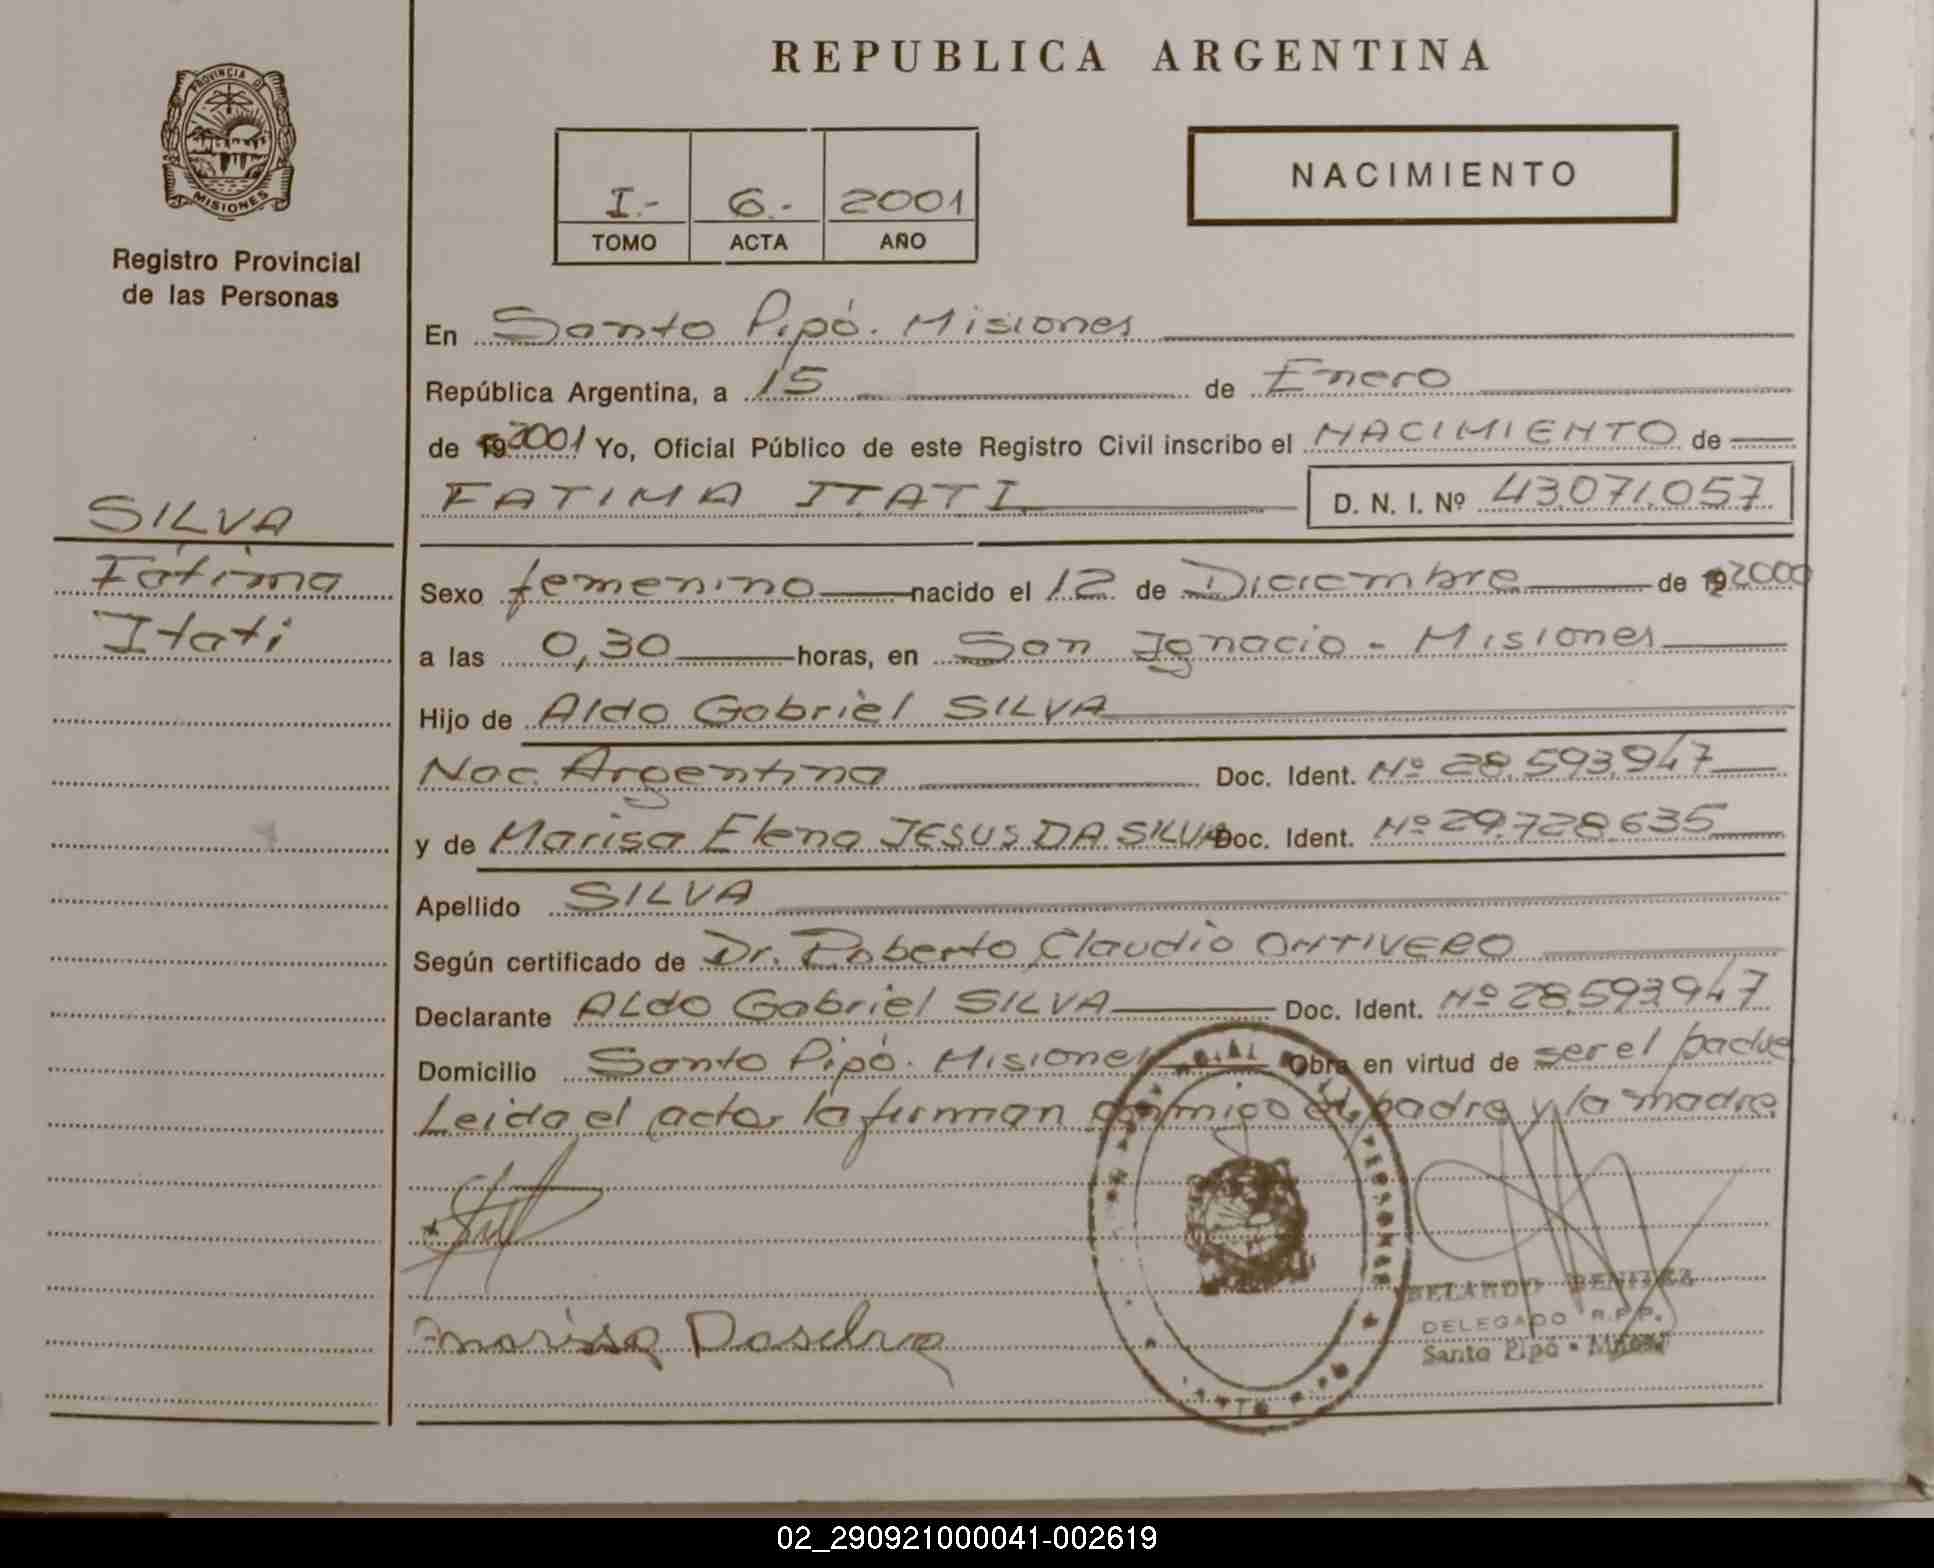 REPUBLICA ARGENTINA
PROVINCIA DE
MISIONES
Registro Provincial
de las Personas
NACIMIENTO
I.- 6.- 2001
TOMO ACTA AÑO
En Santo Pipó. Misiones
República Argentina, a 15 de Enero
de 19 2001 Yo, Oficial Público de este Registro Civil inscribo el NACIMIENTO de
FATIMA ITATI D. N. I. Nº 43.071.057
SILVA
Fátima
Itati
Sexo femenino nacido el 12 de Diciembre de 19 2000
a las 0,30 horas, en San Ignacio - Misiones
Hijo de Aldo Gabriel SILVA
Nac. Argentina Doc. Ident. Nº 28.593.947
y de Marisa Elena JESUS DA SILVA Doc. Ident. Nº 29.728.635
Apellido SILVA
Según certificado de Dr. Roberto Claudio ONTIVERO
Declarante ALdo Gabriel SILVA Doc. Ident. Nº 28.593.947
Domicilio Santo Pipó. Misiones Obra en virtud de ser el padre
Leida el acta, la firman conmigo el padre y la madre
PERSONAS
BENITEZ
DELEGADO R.P.P.
Santo Pipó - Mnes
marisa Dasilva
02_290921000041-002619